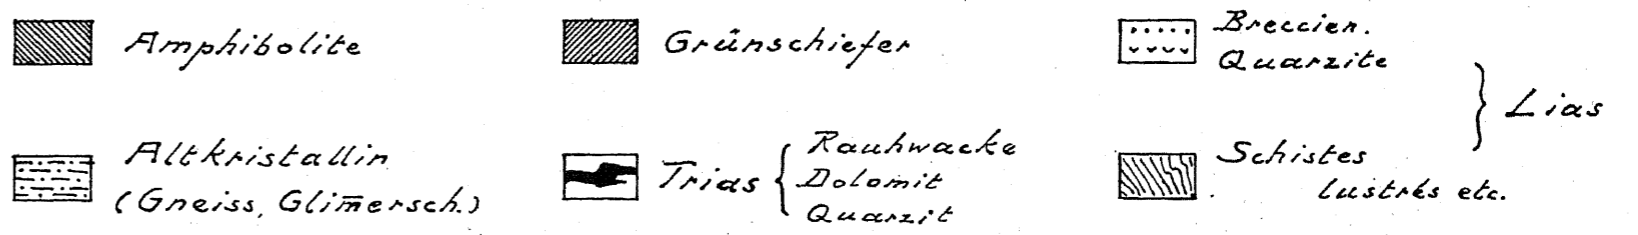 Amphibolite
Altkristallin
(Gneiss, Glim̄ersch.)
Grünschiefer
Trias { Rauhwacke
Dolomit
Quarzit
Breccien.
Quarzite
Schistes
lustrés etc.
} Lias